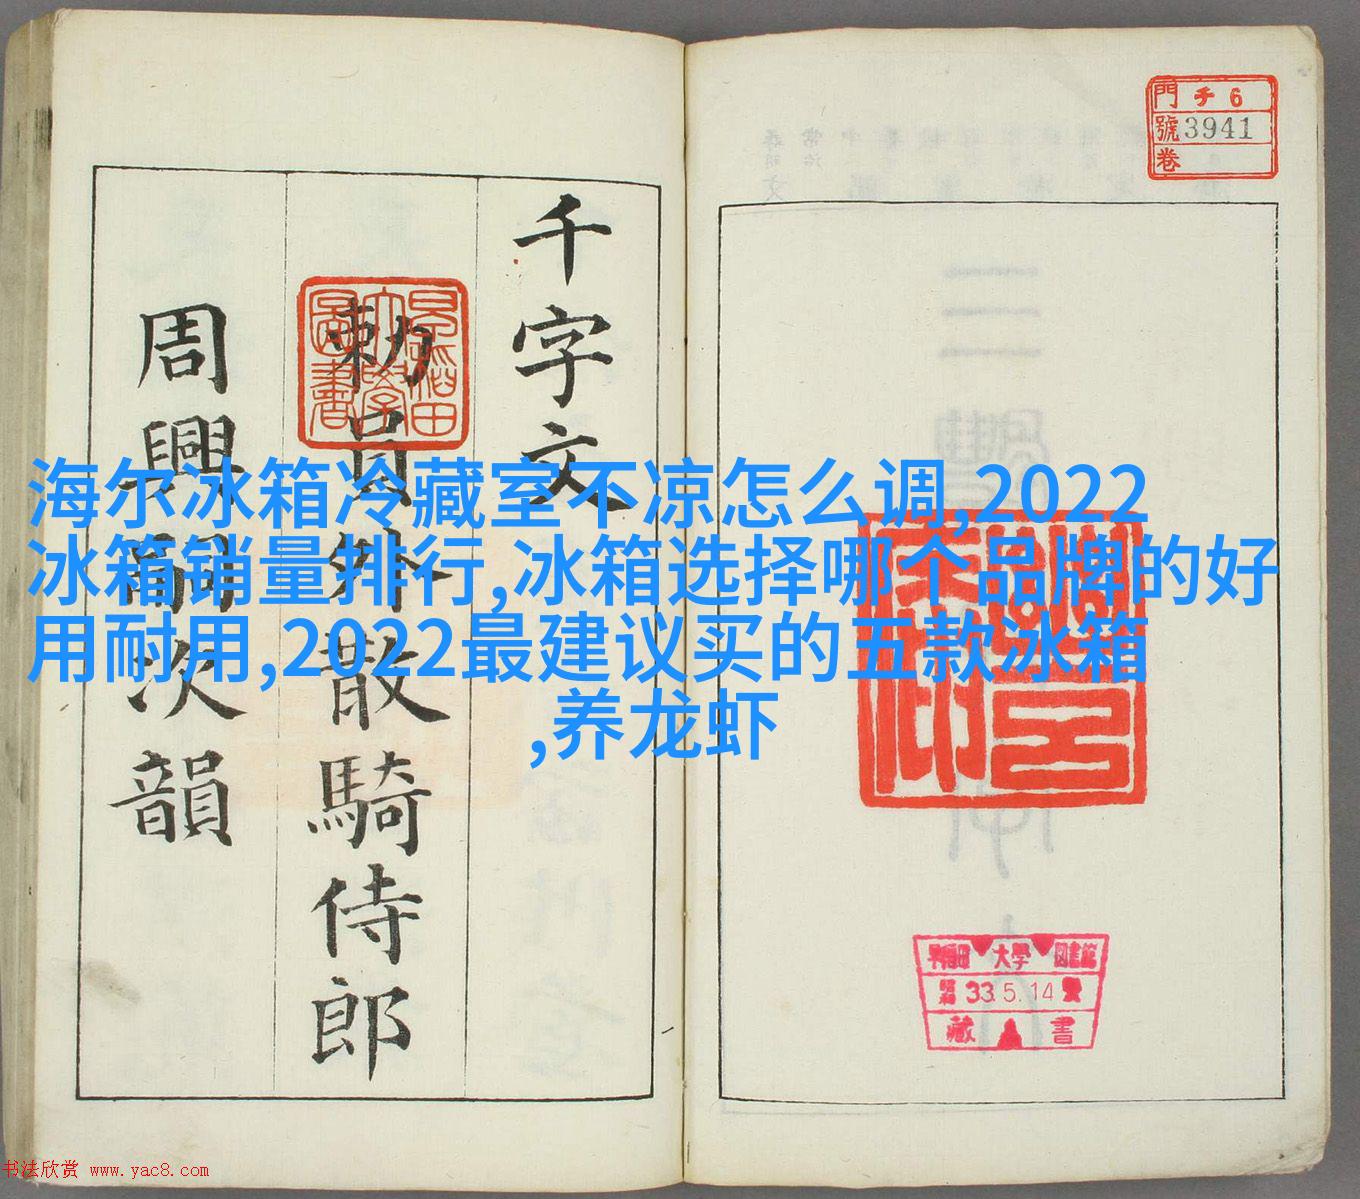 海尔冰箱冷藏室不凉怎么调,2022
冰箱销量排行,冰箱选择哪个品牌的好
用耐用,2022最建议买的五款冰箱
,养龙虾
千字文
勅員外散騎侍郎
周興嗣次韻
門 チ6
號 3941
卷
早稲田大學圖書館
昭和 33.5.14
藏書
书法欣赏 www.yac8.com